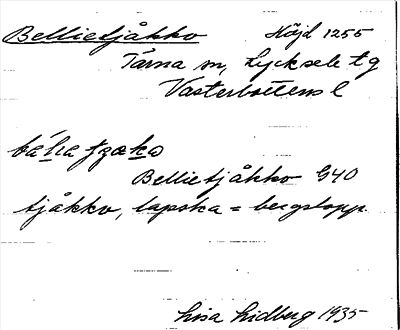 Bellietjåkko Höjd 1255
Tärna sn, Lycksele tg
Västerbottens l
Bellietjåkko G40
tjåkko, lapska = bergstopp.
Lisa Lidberg 1935